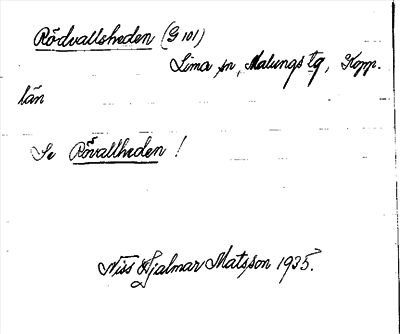 Rödvallsheden (G 101)
Lima sn, Malungs tg, Kopp.
län
Se Rövallheden!
Niss Hjalmar Matsson 1935.